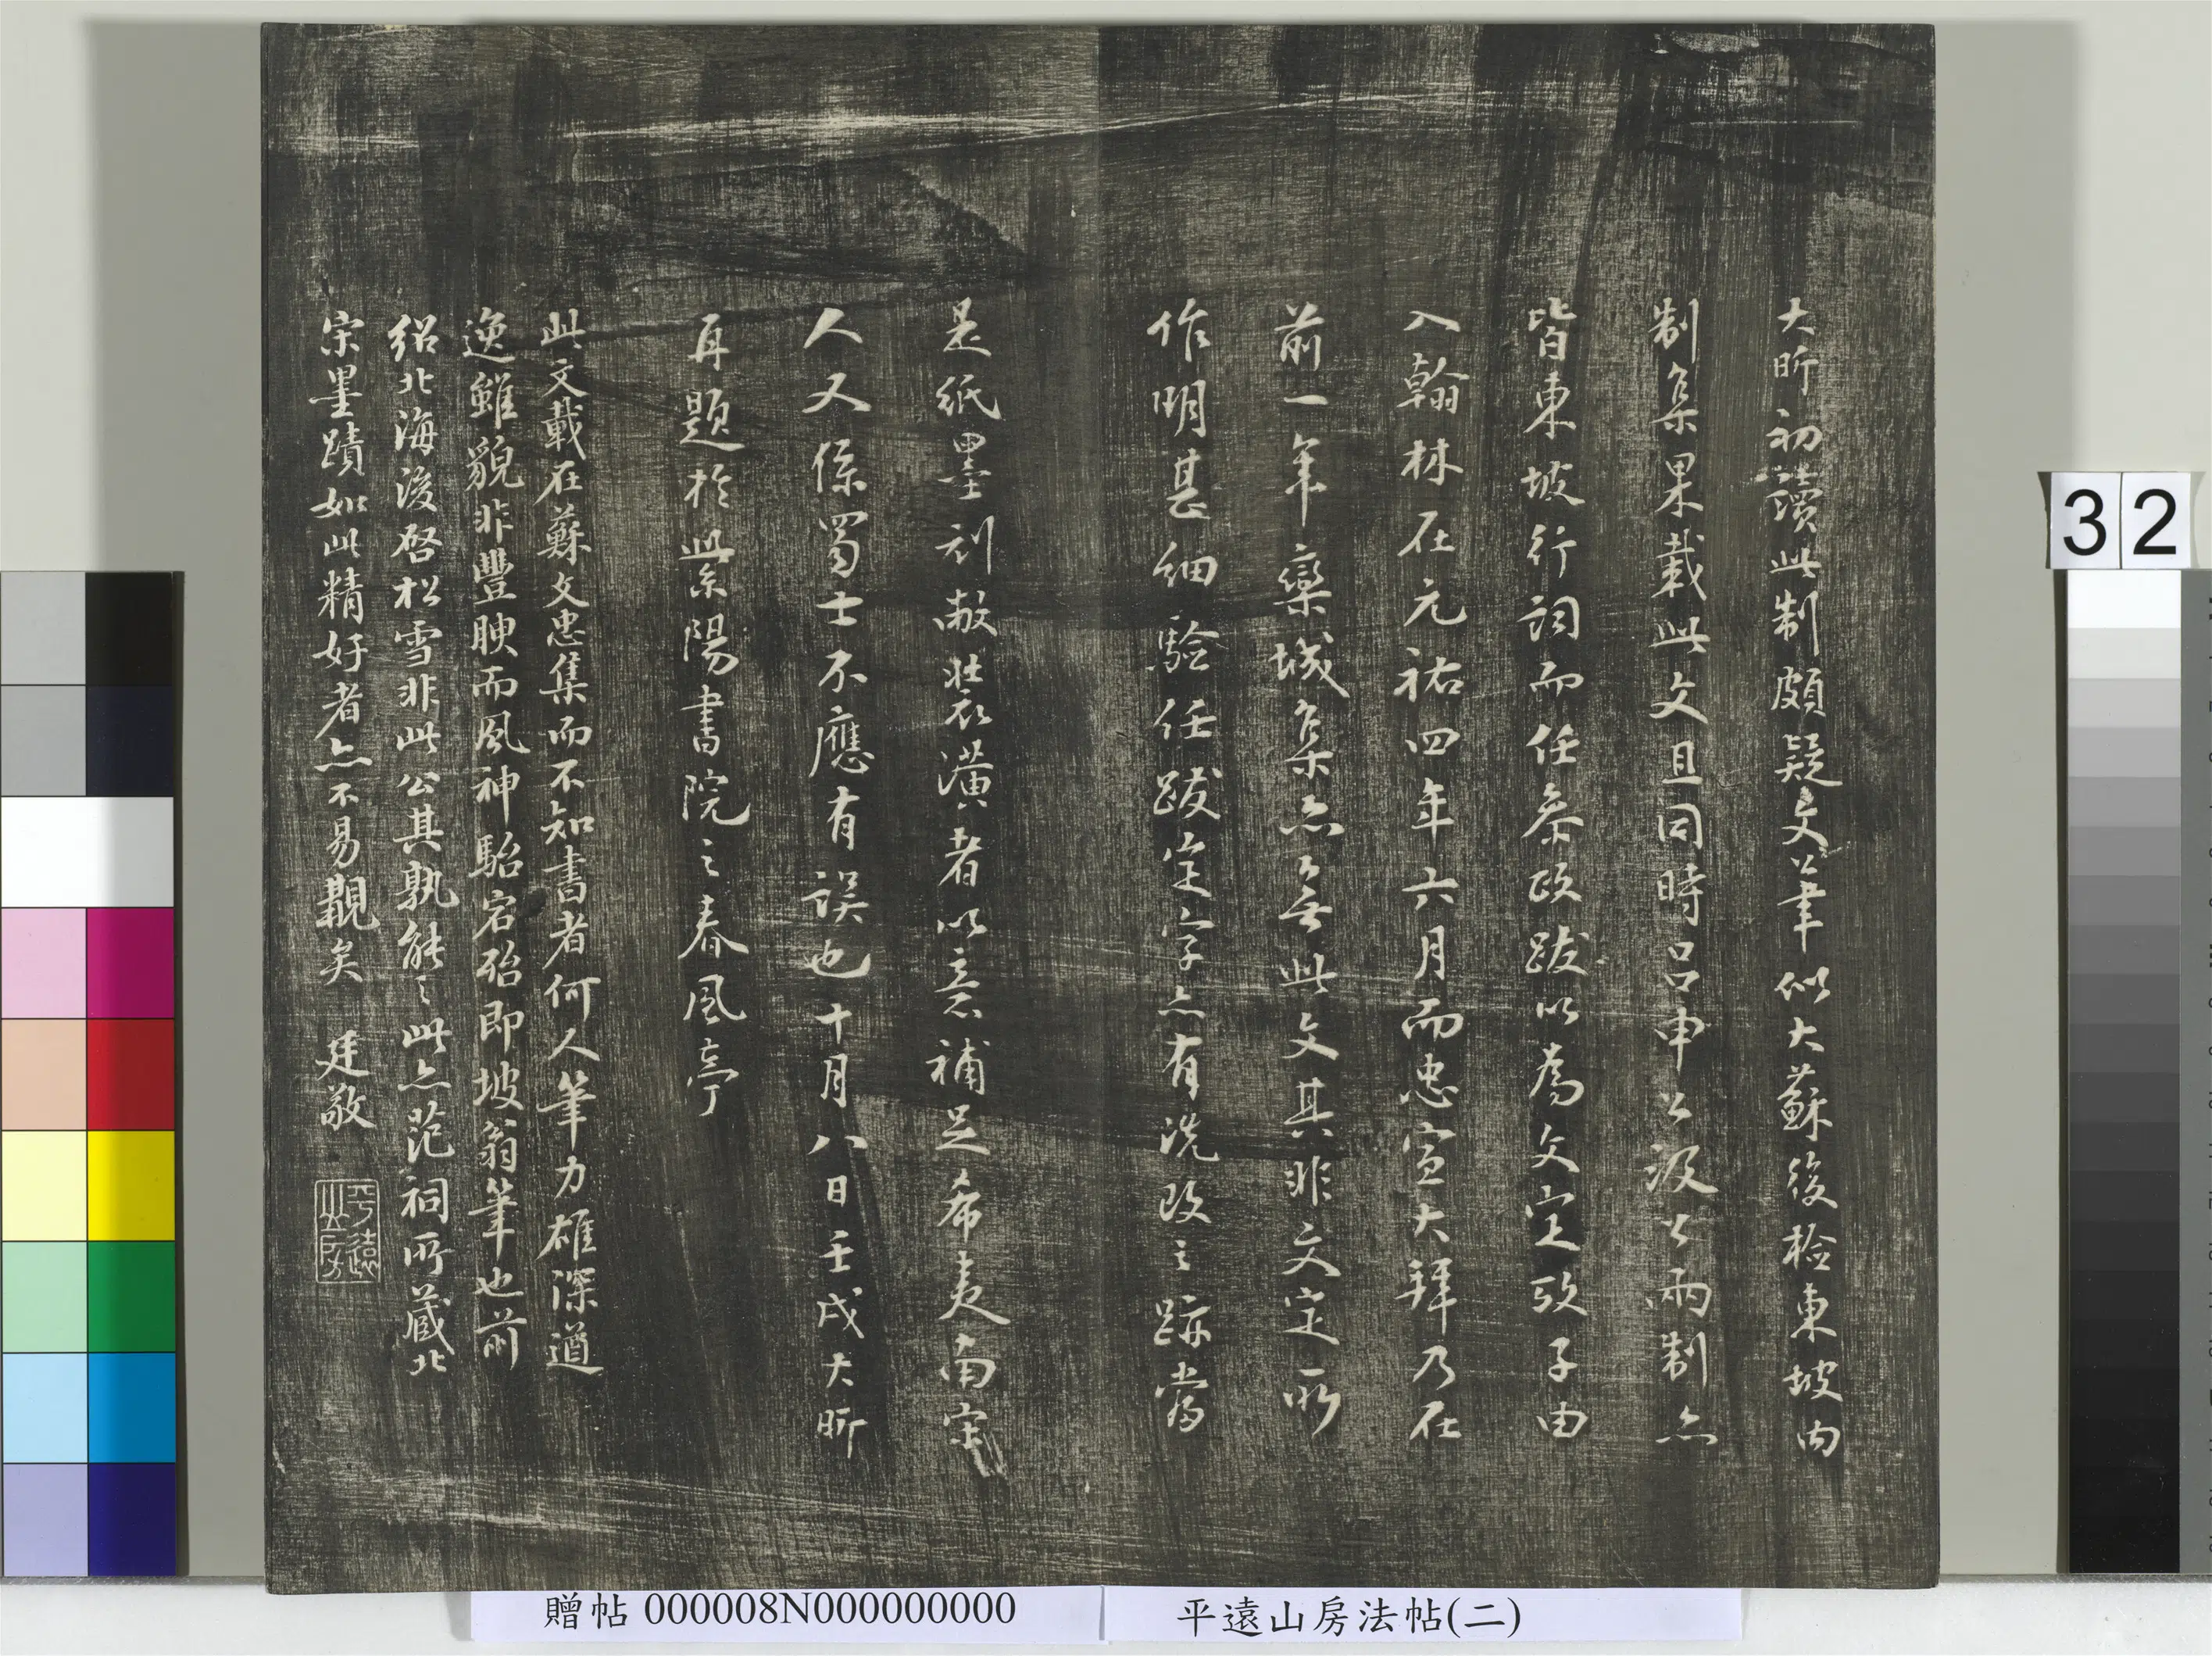 大昕初讀此制頗疑文筆似大蘇後檢東坡內
制集果載此文且同時呂申公汲公兩制亦
皆東坡行詞而任參政跋以為文定攷子由
入翰林在元祐四年六月而忠宣大拜乃在
前一年欒城集亦無此文其非文定所
作明甚細驗任跋定字亦有洗改之跡當
是紙墨刓敝裝潢者以意補足希夷南宋
人又係蜀士不應有誤也十月八日壬戌大昕
再題於紫陽書院之春風亭
此文載在蘇文忠集而不知書者何人筆力雄深遒
逸雖貌非豐腴而風神駘宕殆即坡翁筆也前
紹北海後啓松雪非此公其孰能之此亦范祠所藏北
宋墨蹟如此精好者亦不易覯矣 廷敬
平遠山房
32
贈帖 000008N000000000
平遠山房法帖(二)